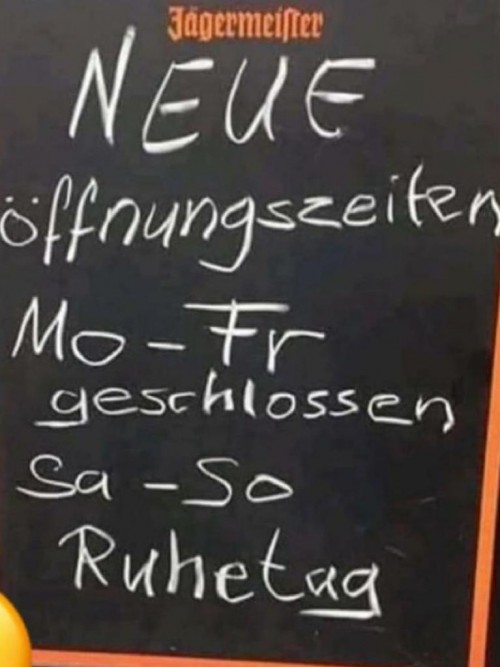 Jägermeister
NEUE
öffnungszeiten
Mo - Fr
geschlossen
Sa - So
Ruhetag